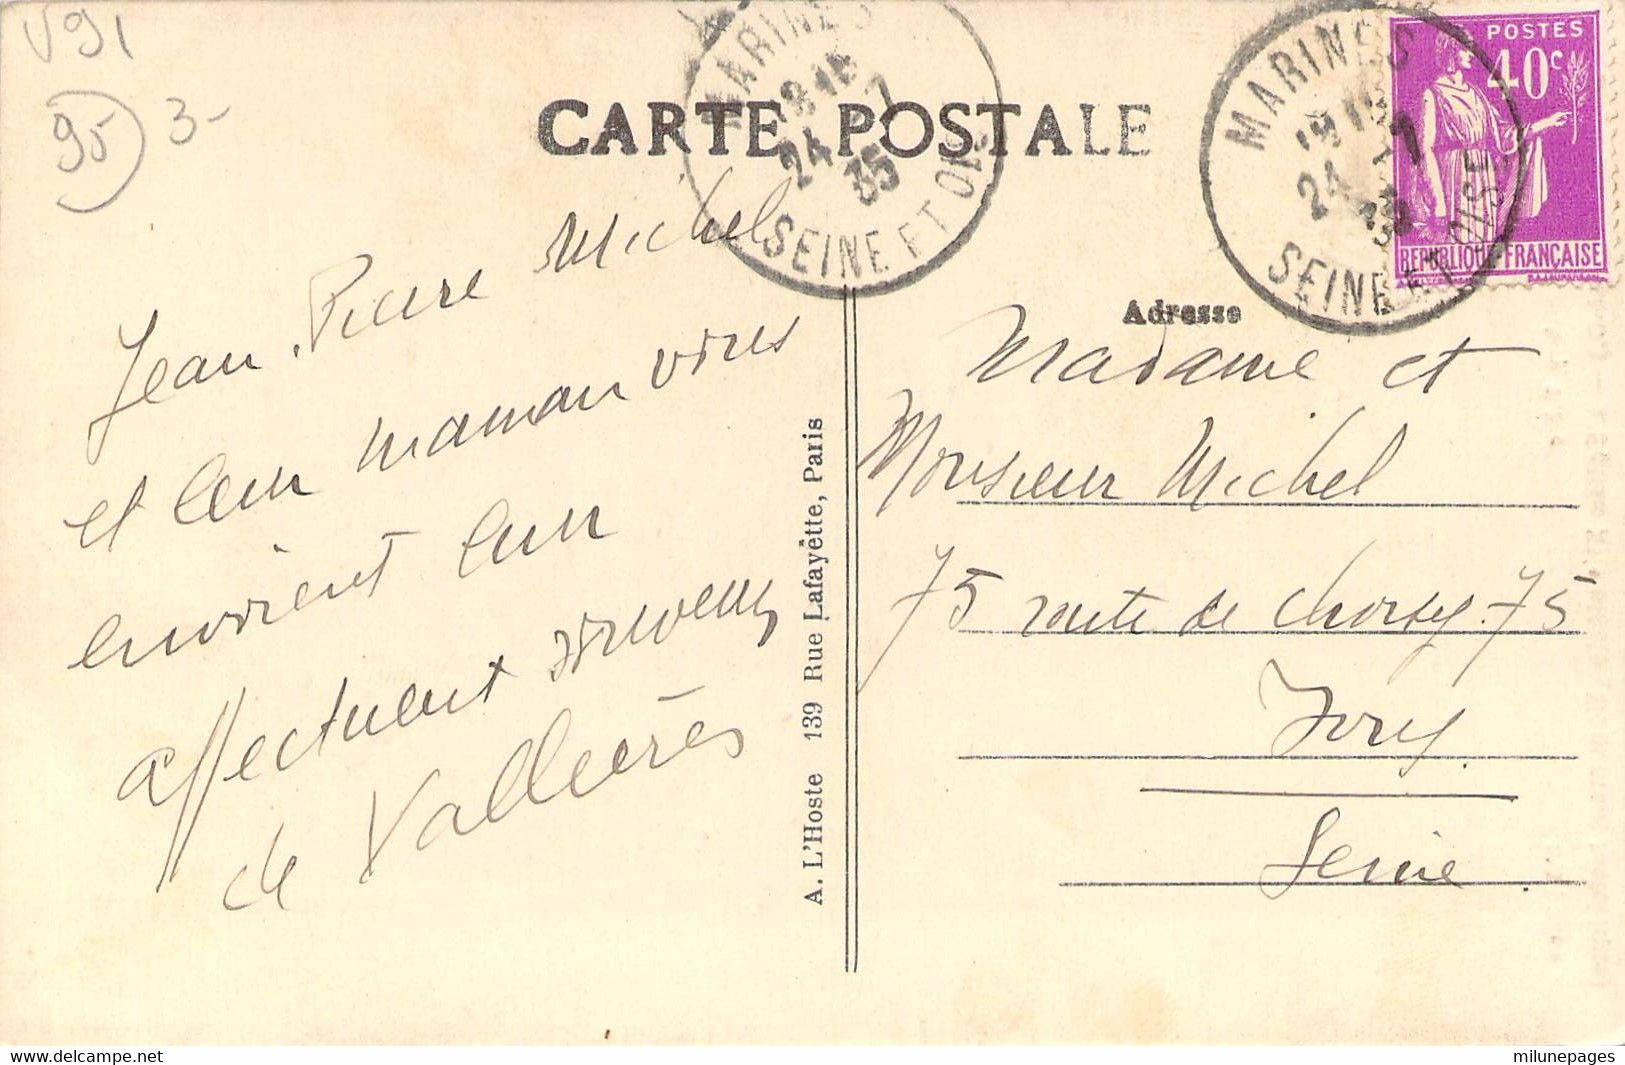 V91
95 3-
CARTE POSTALE
MARINES
18 15
24 7
35
SEINE ET OISE
MARINES
18 15
24 7
35
SEINE ET OISE
POSTES
40c
REPUBLIQUE FRANÇAISE
Jean-Pierre Michel
et leur maman vous
envoient leur
affectueux souvenir
de Vallières
A. L'Hoste 139 Rue Lafayëtte, Paris
Adresse
Madame et
Monsieur Michel
75 route de Choisy 75
Ivry
Seine
www.delcampe.net
milunepages